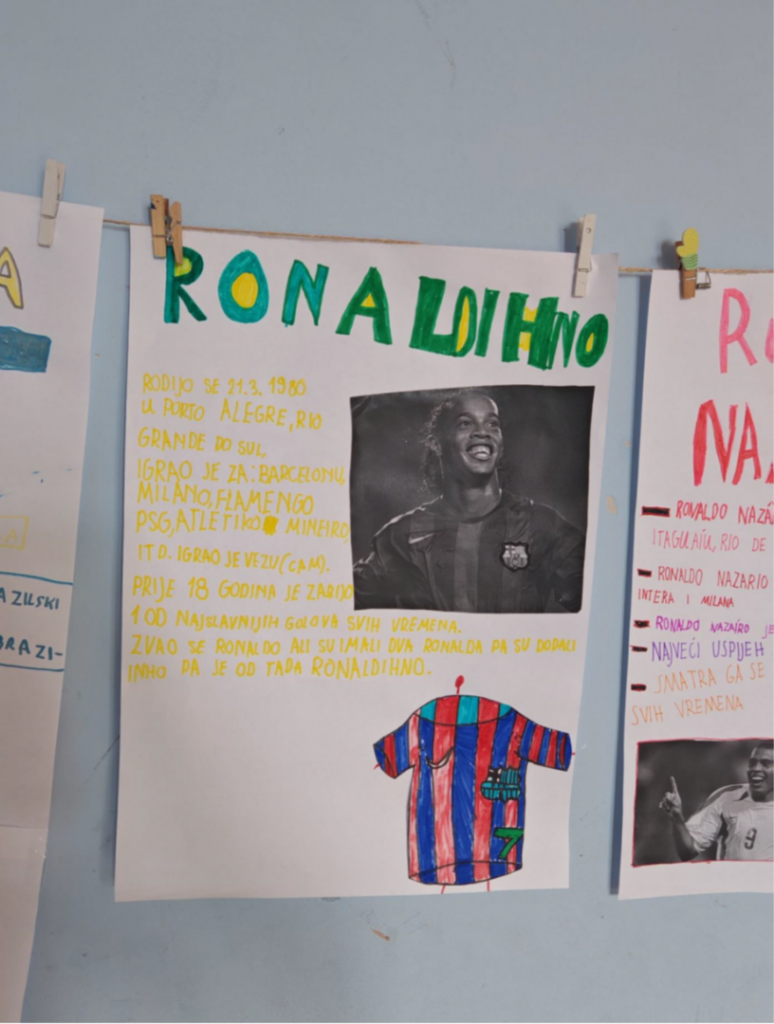 A
AZILSKI
BRAZI-
RONALDIHNO
RODIJO SE 21.3. 1980
U PORTO ALEGRE, RIO
GRANDE DO SUL,
IGRAO JE ZA: BARCELONU,
MILANO, FLAMENGO
PSG, ATLETIKO MINEIRO,
ITD. IGRAO JE VEZU (CAM).
PRIJE 18 GODINA JE ZABIO
1 OD NAJSLAVNIJIH GOLOVA SVIH VREMENA.
ZVAO SE RONALDO ALI SU IMALI DVA RONALDA PA SU DODALI
INHO PA JE OD TADA RONALDIHNO.
7
R
NAZ
RONALDO NAZÁ
ITAGUAÍU, RIO DE
RONALDO NAZARIO
INTERA I MILANA
RONALDO NAZAÍRO JE
NAJVEĆI USPIJEH
SMATRA GA SE
SVIH VREMENA
9